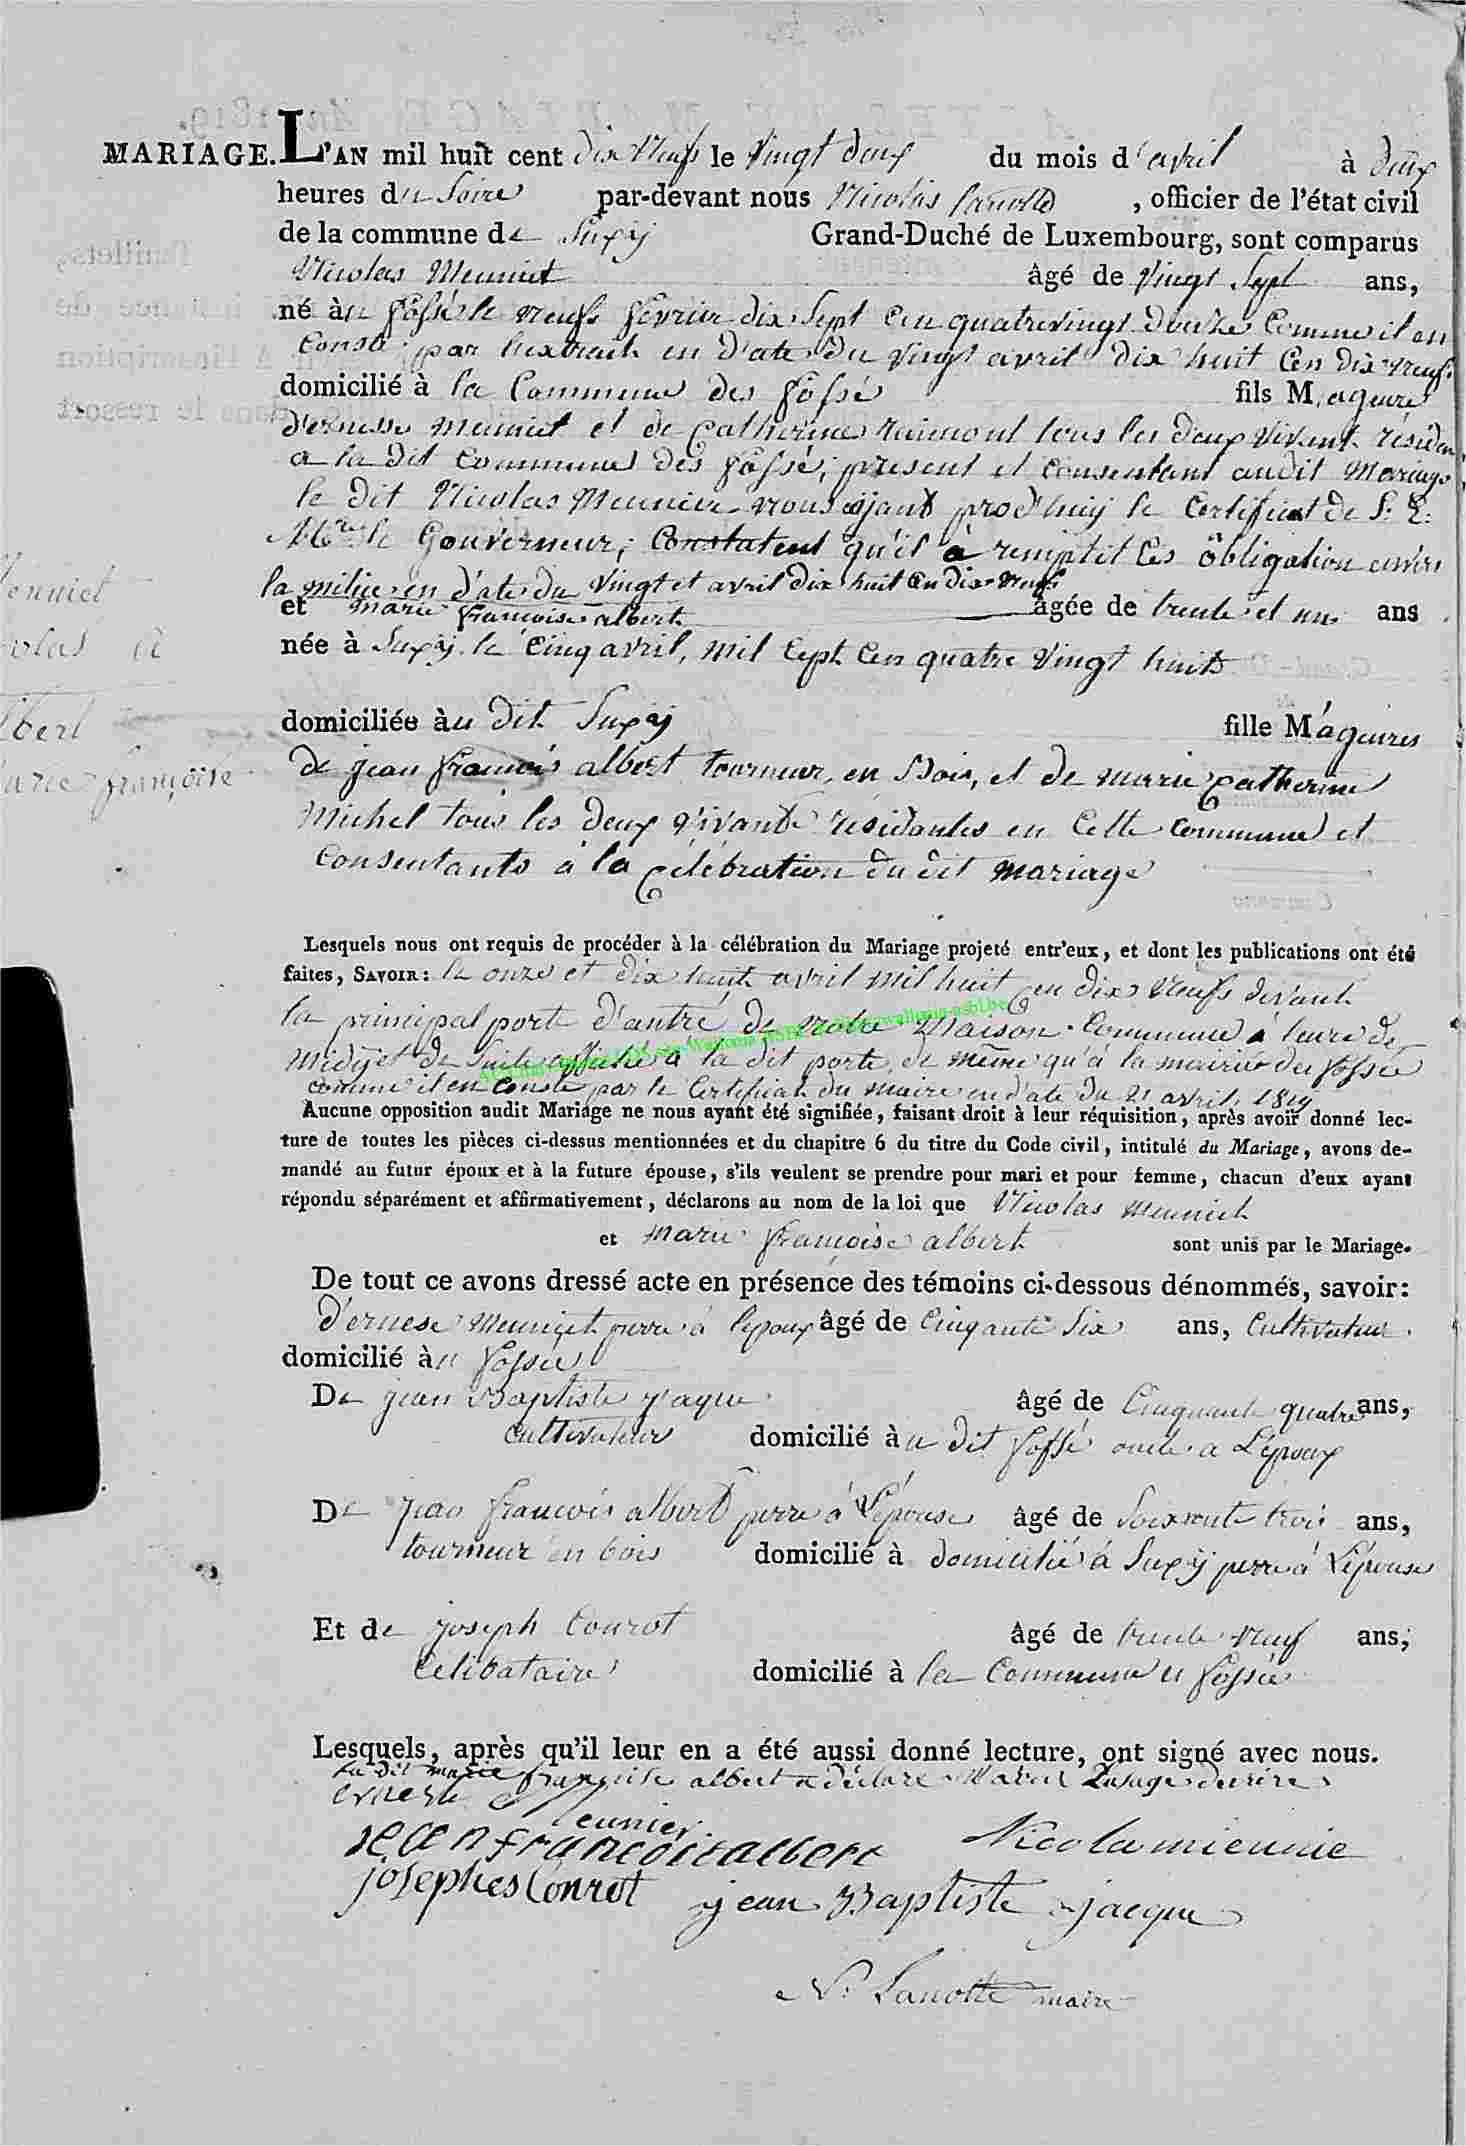 MARIAGE. L'AN mil huit cent dix Neufs le Vingt deux du mois d'avril à deux
heures du Soire par-devant nous Nicolas Lanotte, officier de l'état civil
de la commune de Suxÿ Grand-Duché de Luxembourg, sont comparus
Nicolas Meuniet âgé de Vingt Sept ans,
né àu fossé le neufs fevrier dix Sept Cen quatrevingt douze Comme il en
Conste par l'extrait en d'ate du Vingt avril dix huit Cen dix neufs
domicilié à la Commune des fossé fils M'ageure
d'ernesse meuniet et de Catherine raimont tous les deux vivant résidan
a la dit Commune des fossé, present et Consentant audit Mariage
le dit Nicolas Meunier nous ajant prod'huis le Certificat de S. E.
Mr. le Gouverneur, Constatent qu'il à remptit les öbligation envers
la milice en d'ate du Vingt et avril dix huit Cen dix neufs
et marie françoise albert âgée de trente et un ans
née à Suxÿ le Cinq avril, mil Sept Cen quatre Vingt huit
Menniet
colas à
lbert
arie françoise
domiciliée àu dit Suxÿ fille M'ageures
de jean francois albert tourneur en Bois, et de marie Catherine
Michel tous les deux vivants résidantes en Cette Commune et
Consentants à la Célébration du dit mariage
Lesquels nous ont requis de procéder à la célébration du Mariage projeté entr'eux, et dont les publications ont été
faites, SAVOIR: le onze et dix huit avril mil huit Cen dix Neufs devant
la principal porte d'antré de notre Maison Commune à leure de
midÿ et de Suite affiché à la dit porte de même qu'à la mairie des fossée
comme il en Conste par le Certificat du maire en d'ate du 21 avril 1819
Aucune opposition audit Mariage ne nous ayant été signifiée, faisant droit à leur réquisition, après avoir donné lec-
ture de toutes les pièces ci-dessus mentionnées et du chapitre 6 du titre du Code civil, intitulé du Mariage, avons de-
mandé au futur époux et à la future épouse, s'ils veulent se prendre pour mari et pour femme, chacun d'eux ayant
répondu séparément et affirmativement, déclarons au nom de la loi que Nicolas meuniet
et marie françoise albert sont unis par le Mariage.
De tout ce avons dressé acte en présence des témoins ci-dessous dénommés, savoir:
d'ernese meuniet perre à lepoux âgé de Cinqante Six ans, Cultivateur
domicilié àu fossée
De jean Baptiste jaque âgé de Cinquante quatre ans,
cultivateur domicilié àu dit fossé oncle a L'époux
De jean francois albert perre à L'épouse âgé de Soixente trois ans,
tourneur en bois domicilié à domicilié à Suxÿ perre à L'épouse
Et de joseph Conrot âgé de trente neuf ans,
Celibataire domicilié à la Commune es fossée
Lesquels, après qu'il leur en a été aussi donné lecture, ont signé avec nous.
la dit marie françoise albert a déclaré n'avoir Lusage decrire
ernest Meunier
jean francois albert Nicola mieunie
josephes Conrot jean Baptiste jacque
N. Lanotte maire